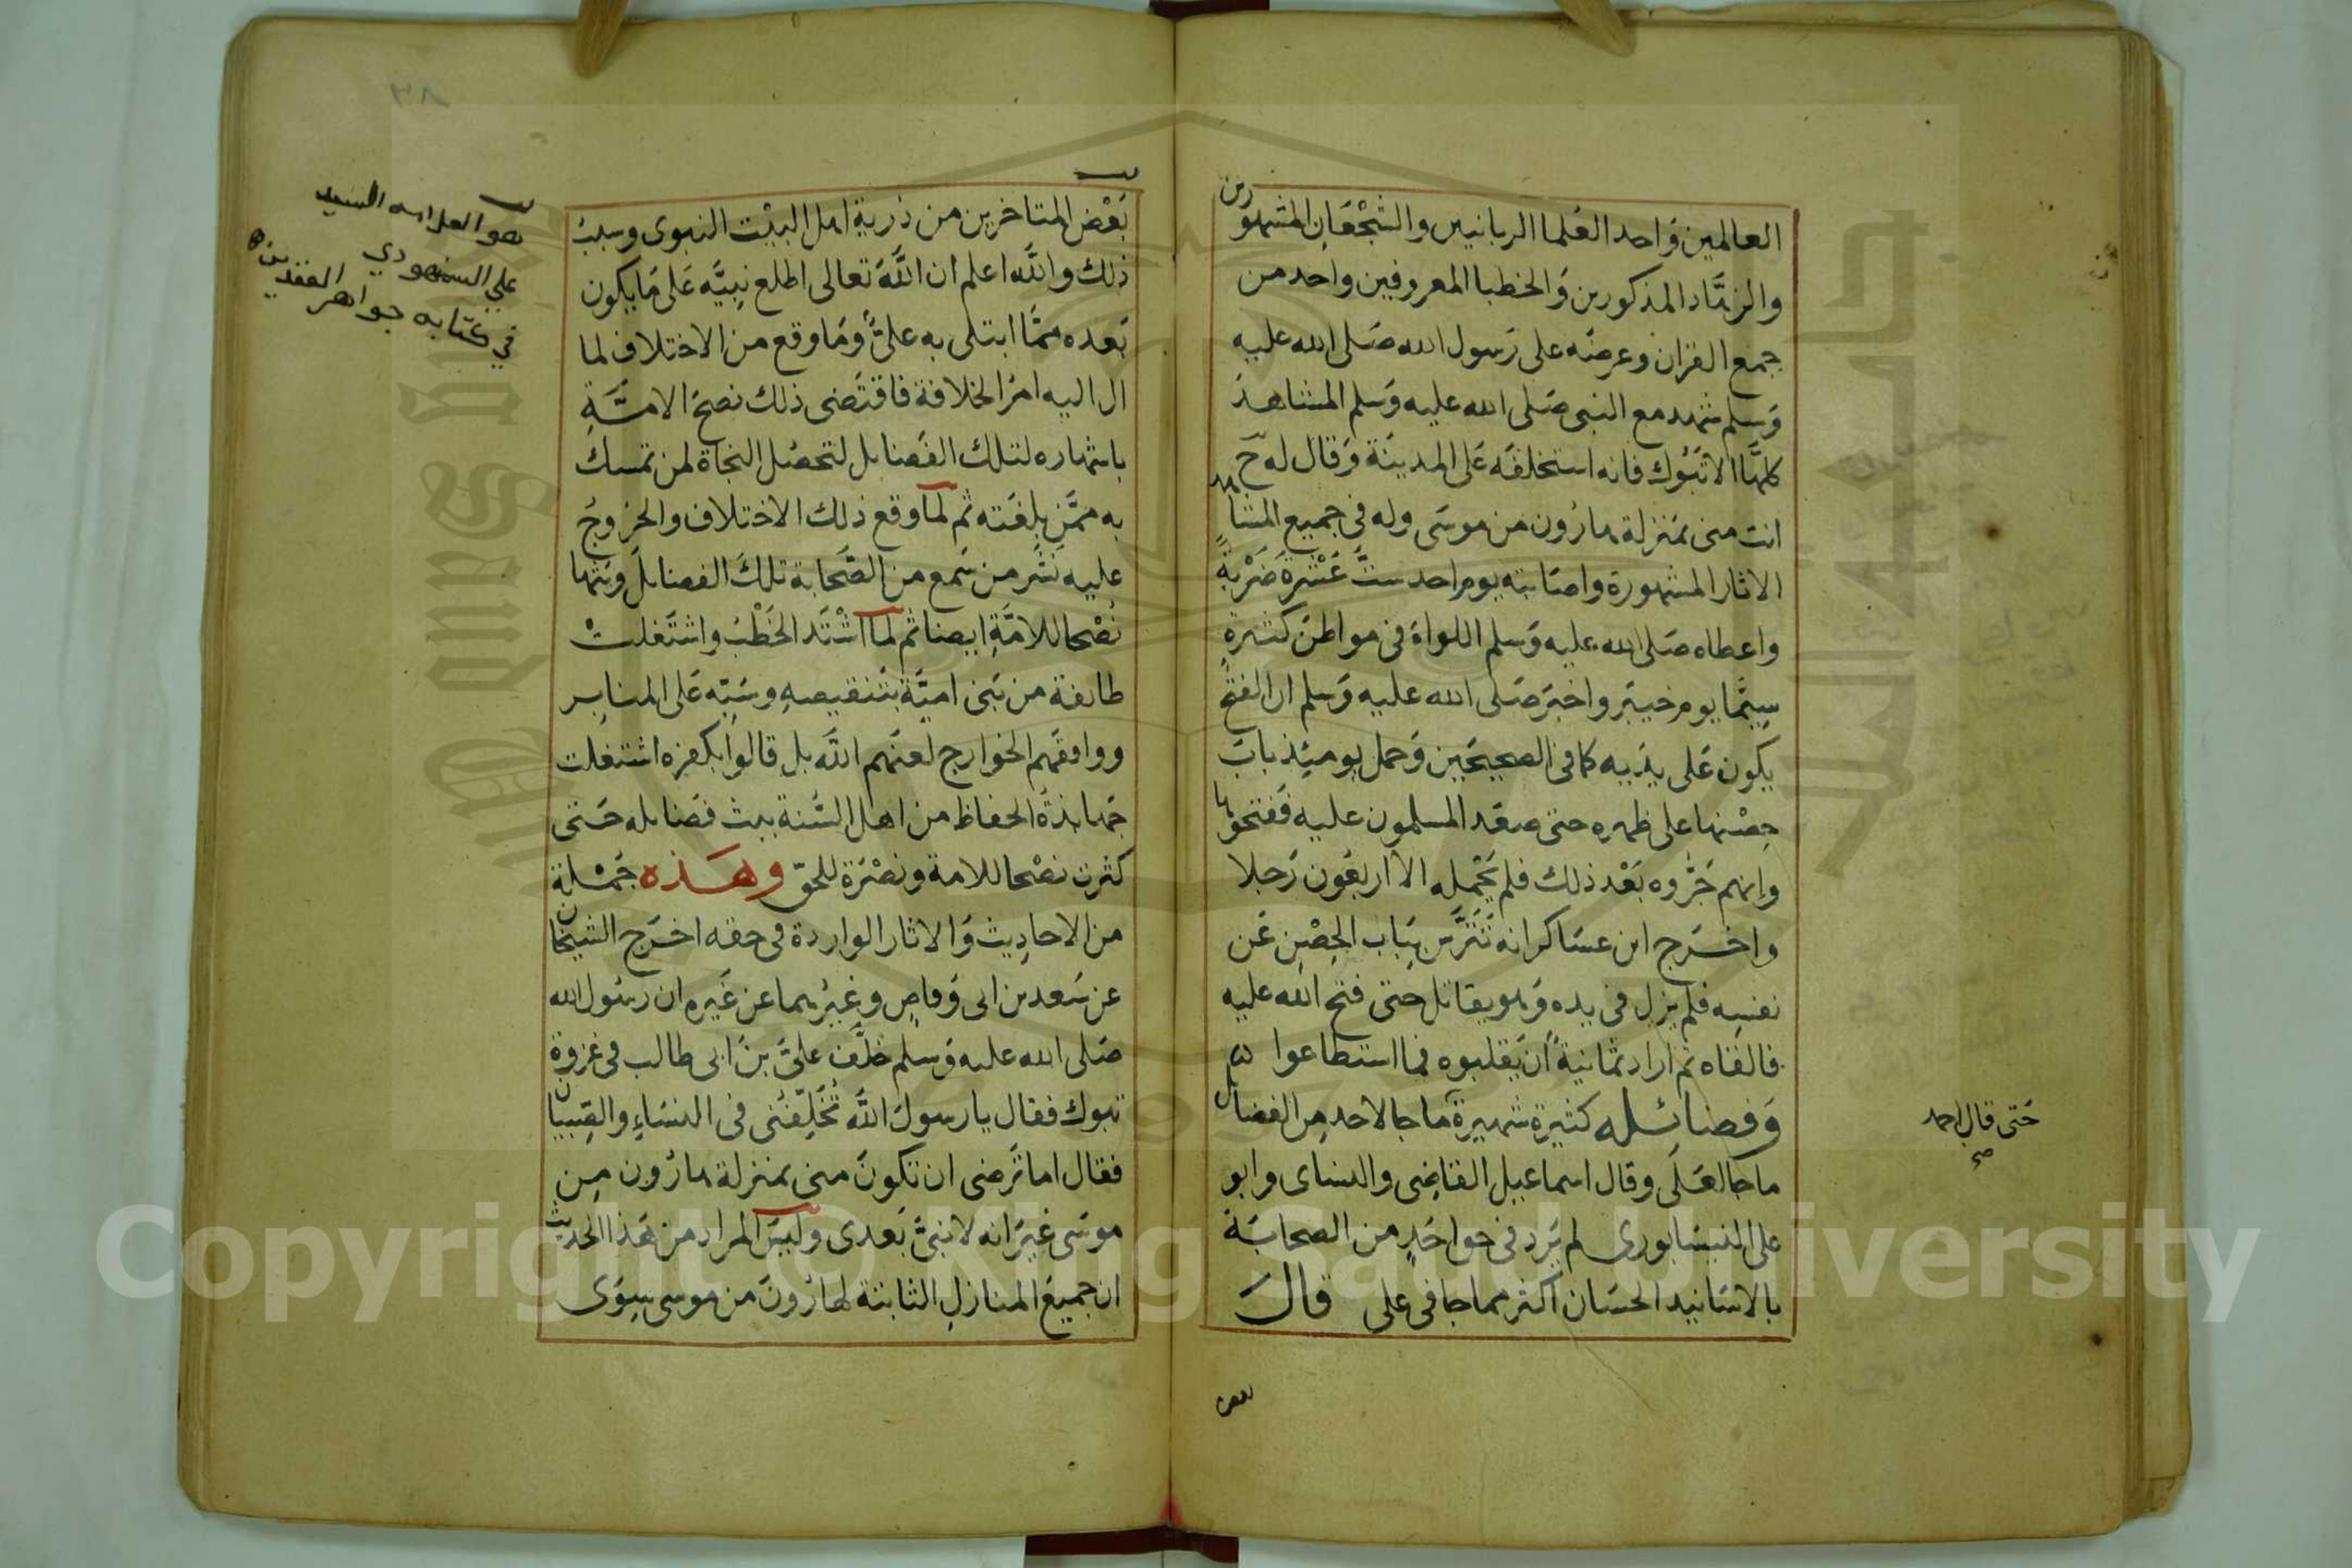 العالمين وَاحد العُلما الربانيين والشجعَانِ المشهورين
والزهَّاد المذكورين وَالخطبا المعروفين واحد من
جمع القران وعرضَه على رَسول الله صَلى الله عليه
وَسلم شهد مع النبى صَلى الله عليه وَسلم المشاهدَ
كلهَّا الا تَبُوك فانه استخلفَه عَلى المدينَة وَقال له ح
انت منى بمَنزلة هارُون من موسَى وله فى جميع المشاهد
الاثار المشهورة واصَابته يوم احد ستَّ عَشْرةَ ضَرْبةً
واعطاه صَلى الله عليه وَسلم اللواءَ فى مواطنَ كثيرةٍ
سِيَّما يوم خيبَر واخبَر صَلى الله عليه وَسلم ان الفتحَ
يكون عَلى يدَيه كما فى الصحيحَين وَحمل يومئِذ بابَ
حِصْنها على ظهره حتى صعَد المسلمون عليه فَفتحوها
وانهم جَرُّوه بَعْد ذلك فلم يَحْمِله الا اربعُون رَجلا
واخرَج ابن عسَاكر انه تَتَرَّس بِبَاب الحِصْنِ عَن
نفسِه فلم يزل فى يده وَهو يقاتل حتى فتح الله عليه
فالقاه ثم اراد ثمانيةٌ اَن يَقلبوه فما استطاعوا
وَفضائله كثيرة شهيرة ما جا لاحد مِن الفضائل
ما جا لعَلى وقال اسماعيل القاضِى والنساى وابو
على النيسَابورى لم يَرد فى حق احَدٍ من الصحابَة
بالاسَانيد الحسَان اكثر مما جا فى على قالَ
حَتى قال احمد
صح
بعض
بَعْض المتاخرين من ذرية اهل البيْت النبوى وسببُ
ذلك والله اعلم ان اللَّهَ تعالى اطلع نبيَّه عَلى مَا يكون
بَعده ممَّا ابتلى به علىٌّ وَمَا وقع من الاختلاف لما
ال اليه امرُ الخلافة فاقتَضى ذلك نصحَ الامَّةِ
باشهاره لتلك الفَضايل لتحصُل النجاة لمن تمسك
به ممَّن بلغَته ثم لما وقع ذلك الاختلاف والخروجُ
عليه نَشَر من سَمع من الصَّحابة تلكَ الفضايلَ وبَثها
نُصْحا للامَّةِ ايضا ثم لما اشْتَد الخَطْبُ واشتَغلتْ
طايفة من بَنى اميَّة بتَنقيصهِ وسَبّه عَلى المنابر
ووافقَهم الخوارج لعنَهم اللَّه بل قالوا بكفره اشتغلت
جَهابذةُ الحفاظ من اهل السُّنة ببث فضَايله حَتى
كثرت نصْحا للامة ونصْرَة للحقّ وهَذه جُمْلة
من الاحادِيث وَالاثار الواردة فى حقه اخرَج الشيخان
عن سَعد بن ابى وَقاصٍ وغيرُهما عن غَيره ان رسُول الله
صَلى الله عليه وَسلم خلَّف علىَّ بنَ ابى طالب فى غزوة
تبوك فقال يا رسولَ اللَّه تُخَلِّفُنى فى النسَاءِ والصِبيَان
فقال اما تَرضى ان تكونَ منى بمنزلة هارُون مِن
موسَى غيرَ انه لا نبىَّ بَعدى وليسَ المراد من هَذا الحديث
ان جميعَ المنازلِ الثابتة لهارُونَ من موسى سِوَى
هو العلامه السيد
علي السمهودي
في كتابه جواهر العقدين
٣٨
Copyright © King Saud University